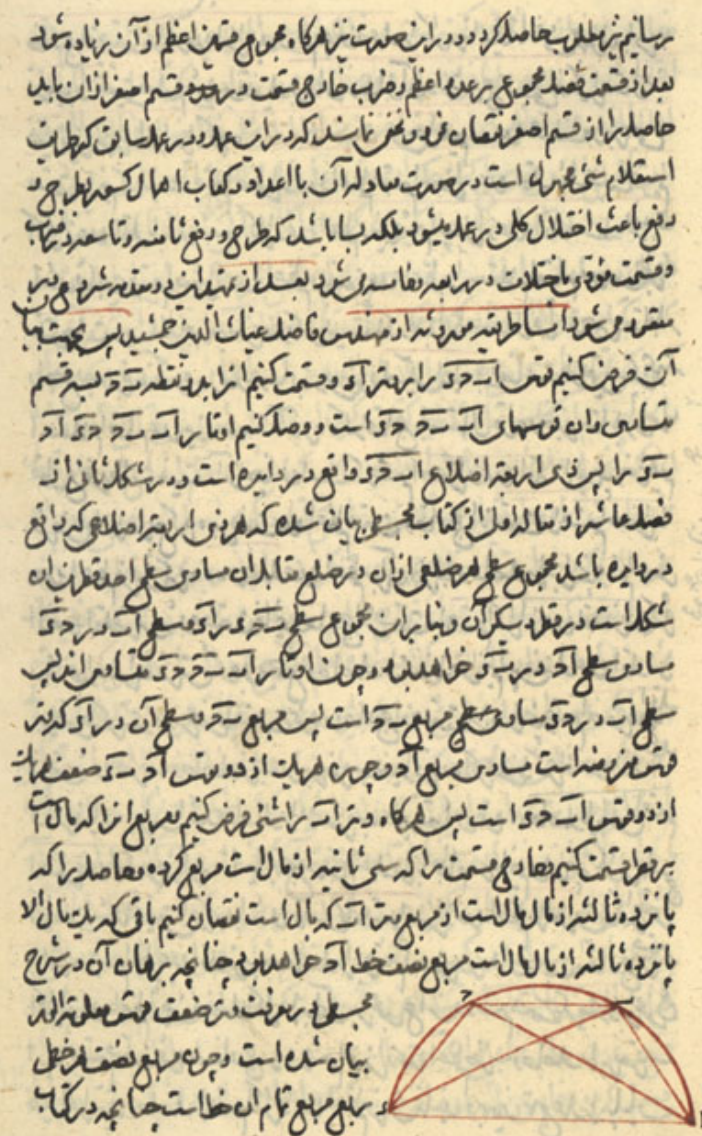 رسانیم نیز مطلوب حاصل کردد و در این صورت نیز هرکاه مجموع قسمین اعظم از آن زیاده شود
بعد از قسمت فضل مجموع بر عدد اعظم و ضرب خارج قسمت در قسم اصغر از آن باید
حاصل را از قسم اصغر نقصان نمود و مخفی نماند که در این عمل و در عمل سابق که طریق
استعلام شئ مجهول است در صورت معادله آن با اعداد و کعاب اهمال کسور بطرح و
رفع باعث اختلال کلی در عمل میشود بلکه بسا باشد که طرح و رفع ثامنه و تاسعه در ضرب
و قسمت مؤدی باختلاف در رابعه و خامسه می شود بعد از تمهید این دو مقدمه شروع در
مقصود می شود اما طریقه موروثه از مهندس فاضل غیاث الدین جمشید پس بجهت بیان
آن فرض کنیم قوس اب ج د را بر وتر اد و قسمت کنیم انرا بدو نقطه ب ج بسه قسم
متساوی و آن قوسهای اب ب ج ج د است و وصل کنیم اوتار اب ب ج ج د ا ج
ب د را پس ذی اربعة اضلاع اب ج د واقع در دایره است و در شکل ثانی از
فصل عاشر از مقاله اولی از کتاب مجسطی بیان شده که هر ذی اربعة اضلاعی که واقع
در دایره باشد مجموع سطح هر ضلعی از آن در ضلع مقابل آن مساوی سطح احد قطرین آن
شکل است در قطر دیکر آن و بنابر آن مجموع سطح ب ج در اد و سطح اب در ج د
مساوی سطح ا ج در ب د خواهد بود و چون اوتار اب ب ج ج د متساوی اند پس
سطح اب در ج د مساوی سطح مربع ب ج است پس مربع ب ج و سطح آن در اد که وتر
قوس مفروضه است مساوی مربع ا ج و چون هر یک از دو قوس ا ج ب د ضعف هر یک
از دو قوس اب ج د است پس هرکاه وتر اب را شئ فرض کنیم و مربع انرا که مال است
بر قطر قسمت کنیم و خارج قسمت را که سی ثانیه از مال است مربع کرده و حاصل را که
پانزده ثالثه از مال مال است از مربع وتر اب که مال است نقصان کنیم باقی که یک مال الا
پانزده ثالثه از مال مال است مربع نصف خط ا ج خواهد بود چنانچه برهان آن در شرح
مجسطی در معرفت وتر ضعف قوس معلومة الوتر
بیان شده است و چون مربع نصف هر خطی
ربع مربع تمام آن خط است چنانچه در کتاب